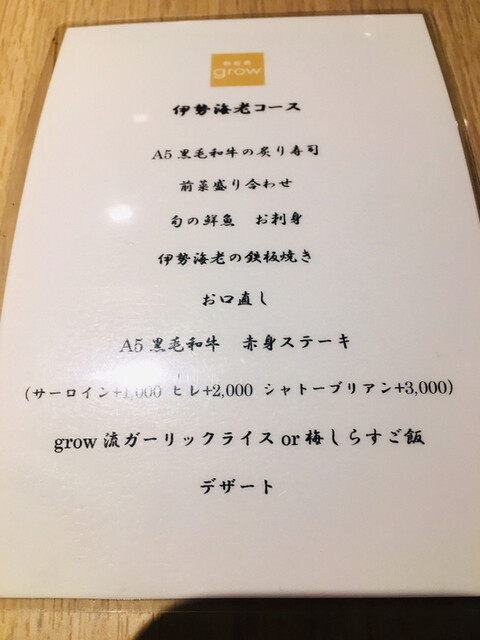 鉄板焼
grow
伊勢海老コース
A5黒毛和牛の炙り寿司
前菜盛り合わせ
旬の鮮魚　お刺身
伊勢海老の鉄板焼き
お口直し
A5黒毛和牛　赤身ステーキ
(サーロイン+1,000 ヒレ+2,000 シャトーブリアン+3,000)
grow流ガーリックライスor梅しらすご飯
デザート